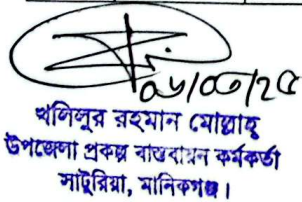 খলিলুর রহমান মোল্লাহ্
উপজেলা প্রকল্প বাস্তবায়ন কর্মকর্তা
সাটুরিয়া, মানিকগঞ্জ।